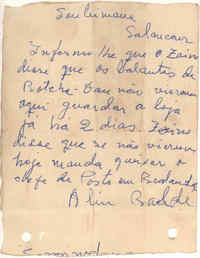 Souleimane
Salancaur
Informo-lhe que o Zaim
disse que os balantas de
Botche-Bau não vieram
aqui guardar a loja
já há 2 dias.
disse que se não vierem
hoje manda queixar o
chefe de Posto em Bedanda